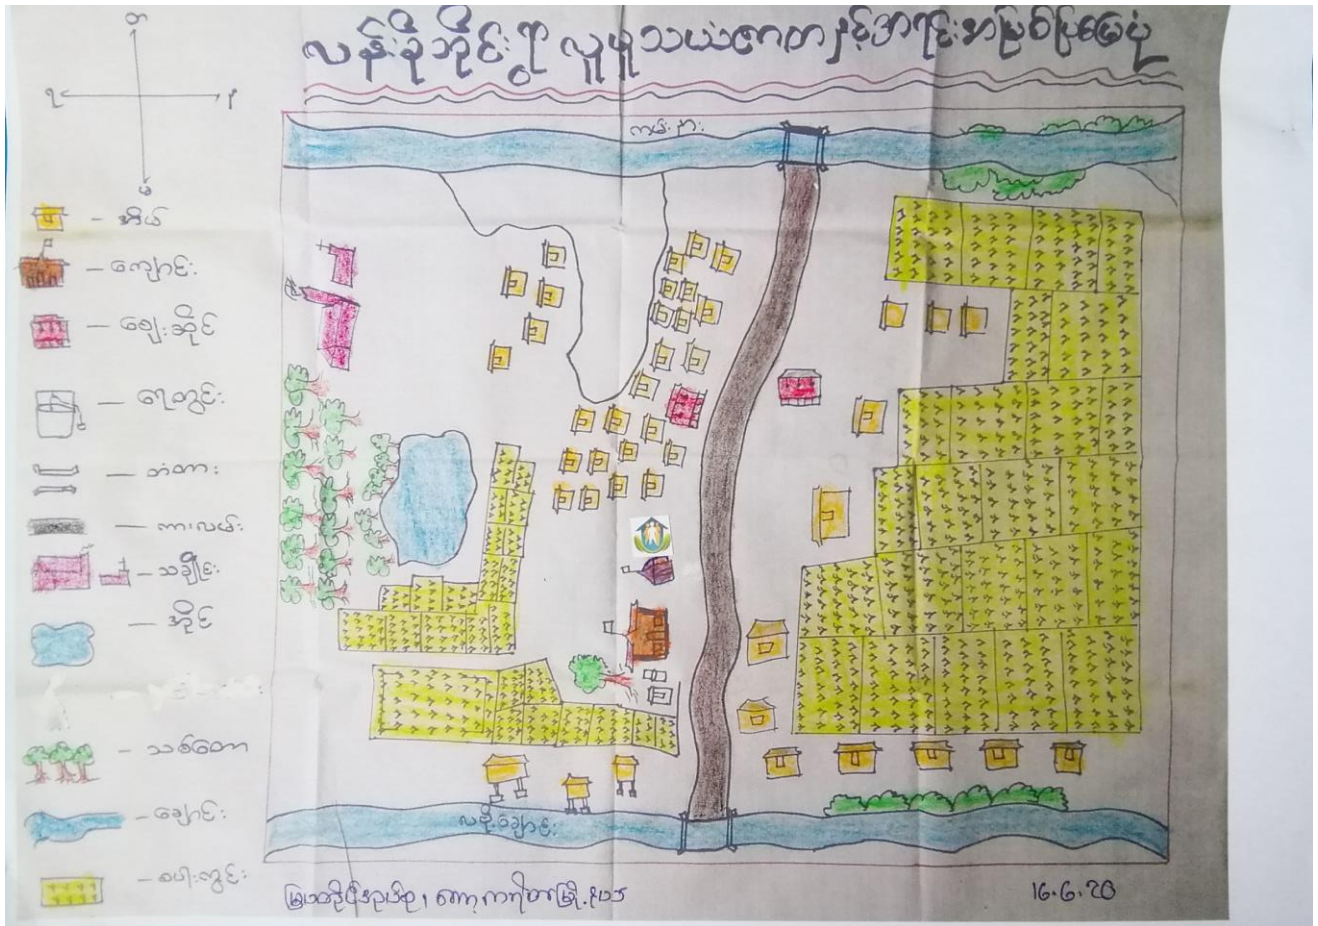 လန်းခိုဘိုင်းရွာ လူမှုသယံဇာတနှင့်အရင်းအမြစ်ပြမြေပုံ
တ
ရ
မ
ကမ်းနား
– အိမ်
– ကျောင်း
– ဈေးဆိုင်
– ရေတွင်း
– တံတား
– ကားလမ်း
– သချိုင်း
– အိုင်
– သစ်တော
– ချောင်း
– စပါးကွင်း
ကော့ကရိတ်မြို့နယ်
16.6.20